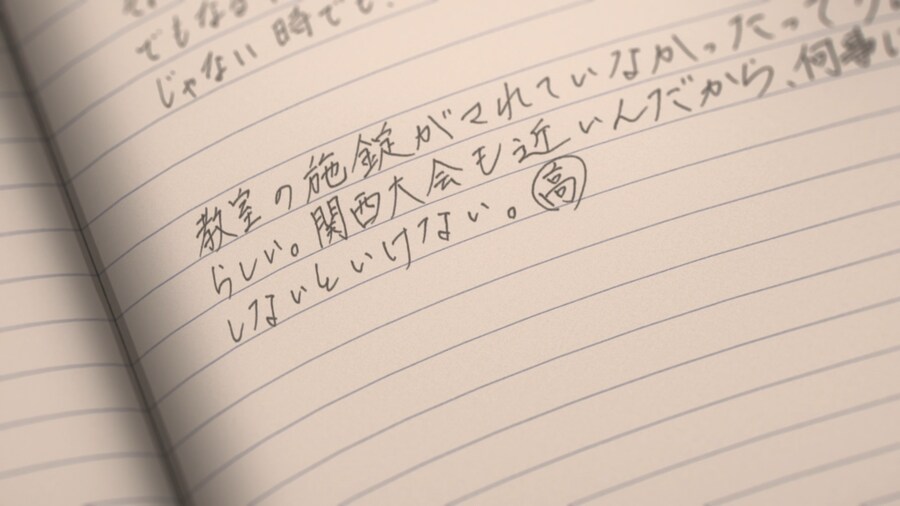 でもなる
じゃない時でも、
教室の施錠がされていなかったってり
らしい。関西大会も近いんだから、何事に
しないといけない。高